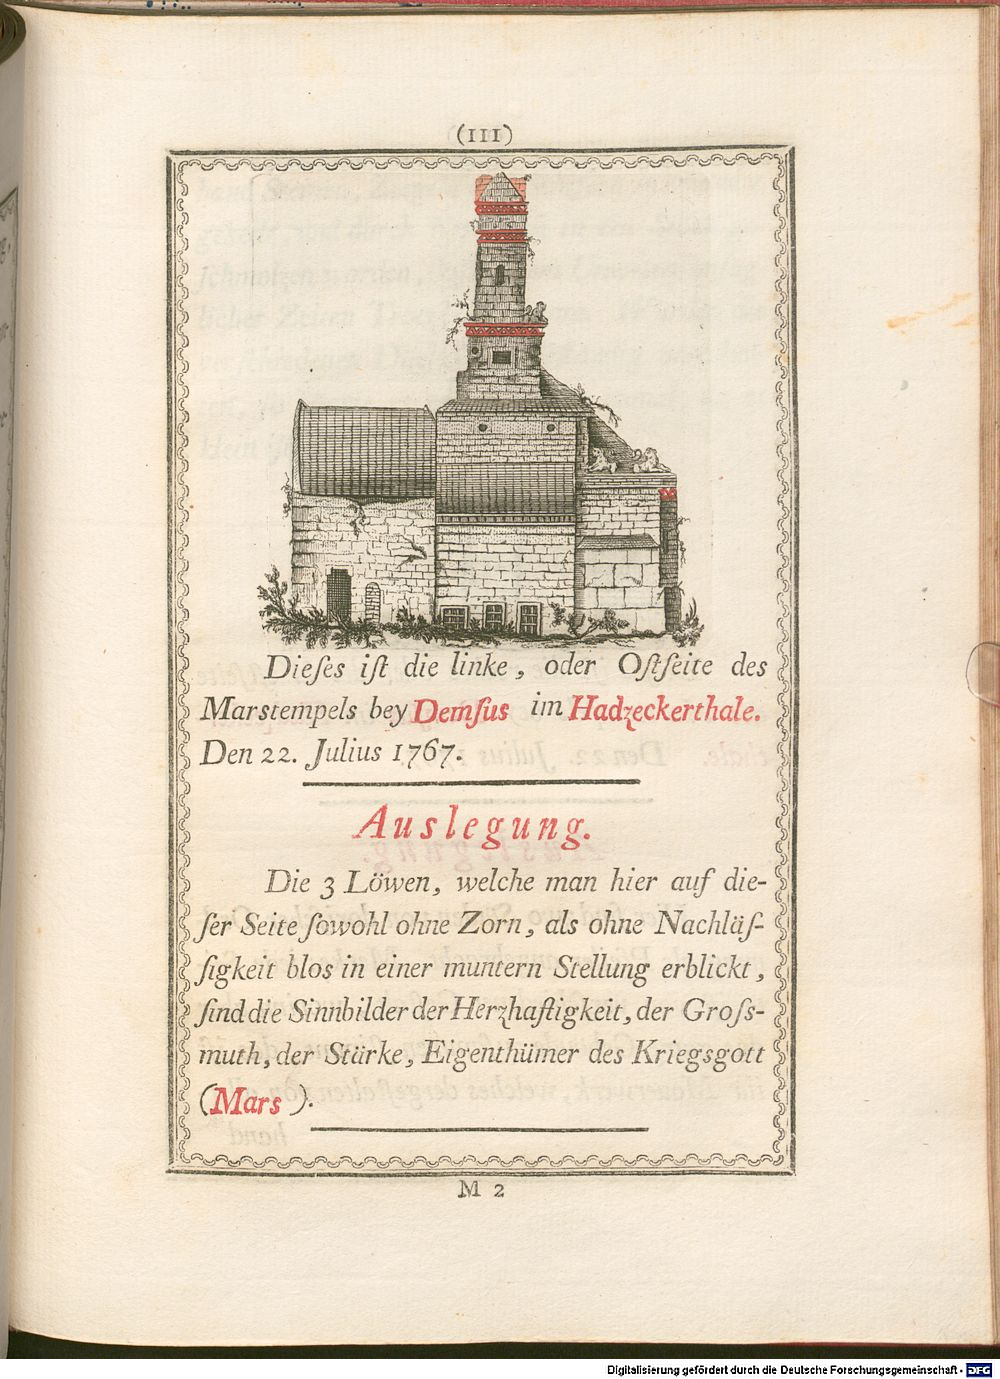 (III)
Dieſes iſt die linke, oder Oſtſeite des
Marstempels bey Demſus im Hadzeckerthale.
Den 22. Julius 1767.
Auslegung.
Die 3 Löwen, welche man hier auf die-
ſer Seite ſowohl ohne Zorn, als ohne Nachläſ-
ſigkeit blos in einer muntern Stellung erblickt,
ſind die Sinnbilder der Herzhaftigkeit, der Groſs-
muth, der Stärke, Eigenthümer des Kriegsgott
(Mars).
M 2
Digitalisierung gefördert durch die Deutsche Forschungsgemeinschaft - DFG